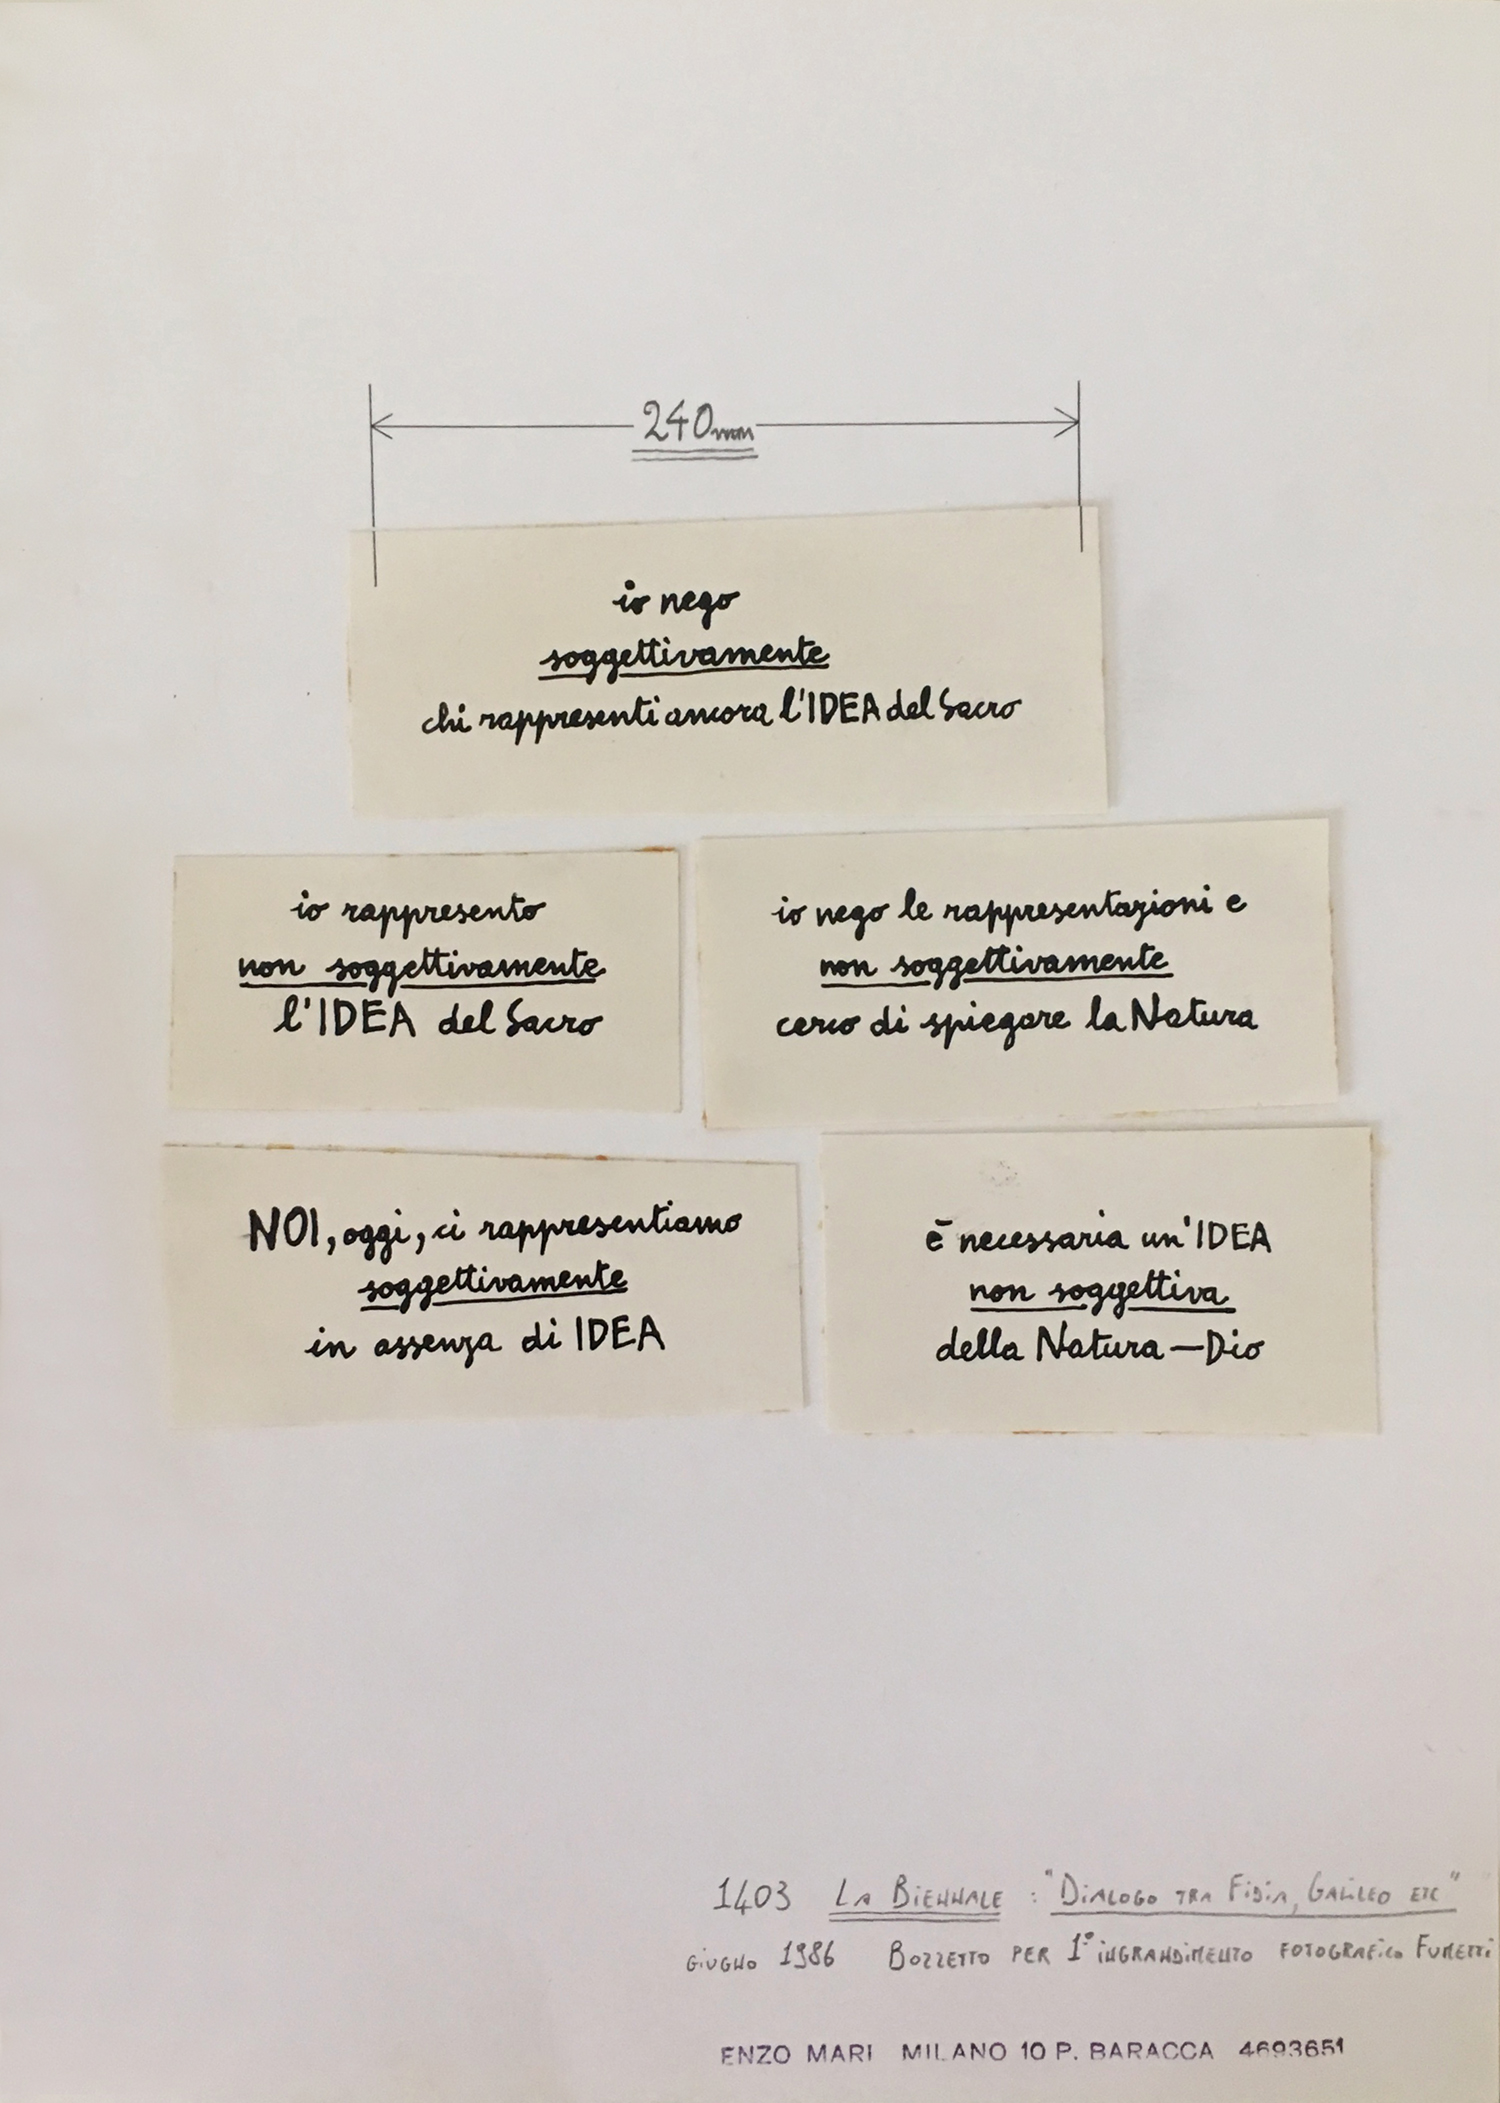 240mm
io nego
soggettivamente
chi rappresenti ancora l'IDEA del Sacro
io rappresento
non soggettivamente
l'IDEA del Sacro
io nego le rappresentazioni e
non soggettivamente
cerco di spiegare la Natura
NOI, oggi, ci rappresentiamo
soggettivamente
in assenza di IDEA
è necessaria un'IDEA
non soggettiva
della Natura—Dio
1403 LA BIENNALE : "DIALOGO TRA FIDIA, GALILEO ETC"
GIUGNO 1986 BOZZETTO PER 1° INGRANDIMENTO FOTOGRAFICO FUMETTI
ENZO MARI MILANO 10 P. BARACCA 4693651